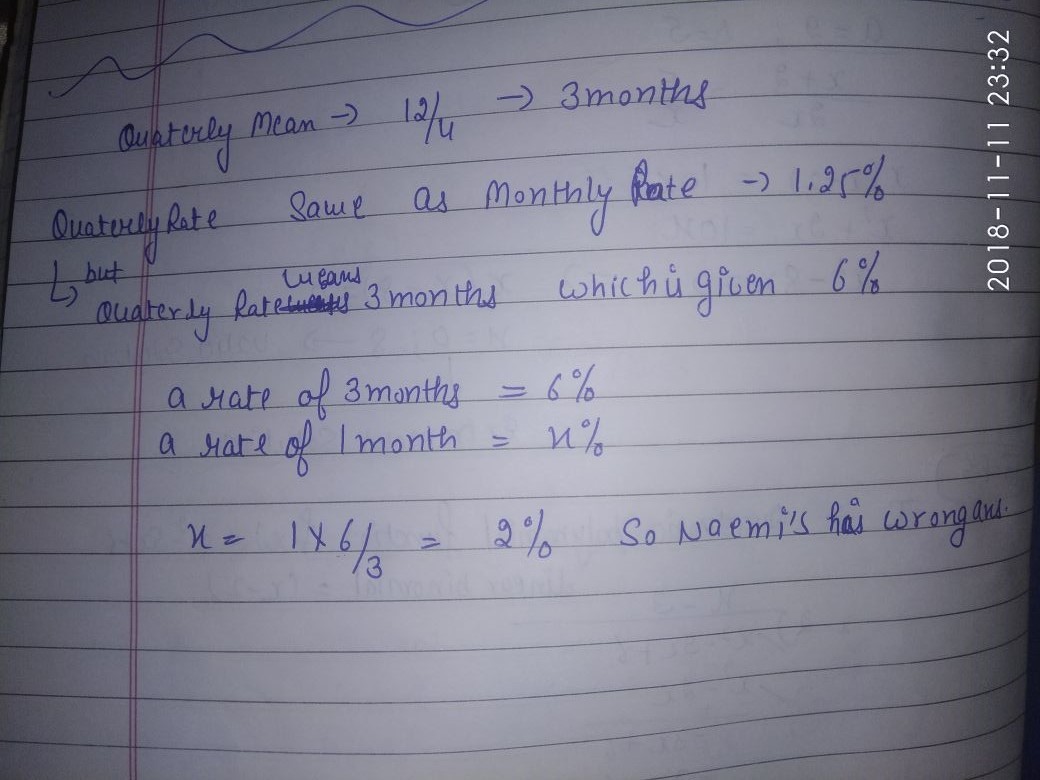 Quaterly Mean → 12/4 → 3 months
Quaterly Rate Same as Monthly Rate → 1.25%
↳ but
means
Quaterly Rate 3 months which is given 6%
a rate of 3 months = 6%
a rate of 1 month = x%
x = 1 x 6/3 = 2% So Naemi's has wrong ans.
2018-11-11 23:32